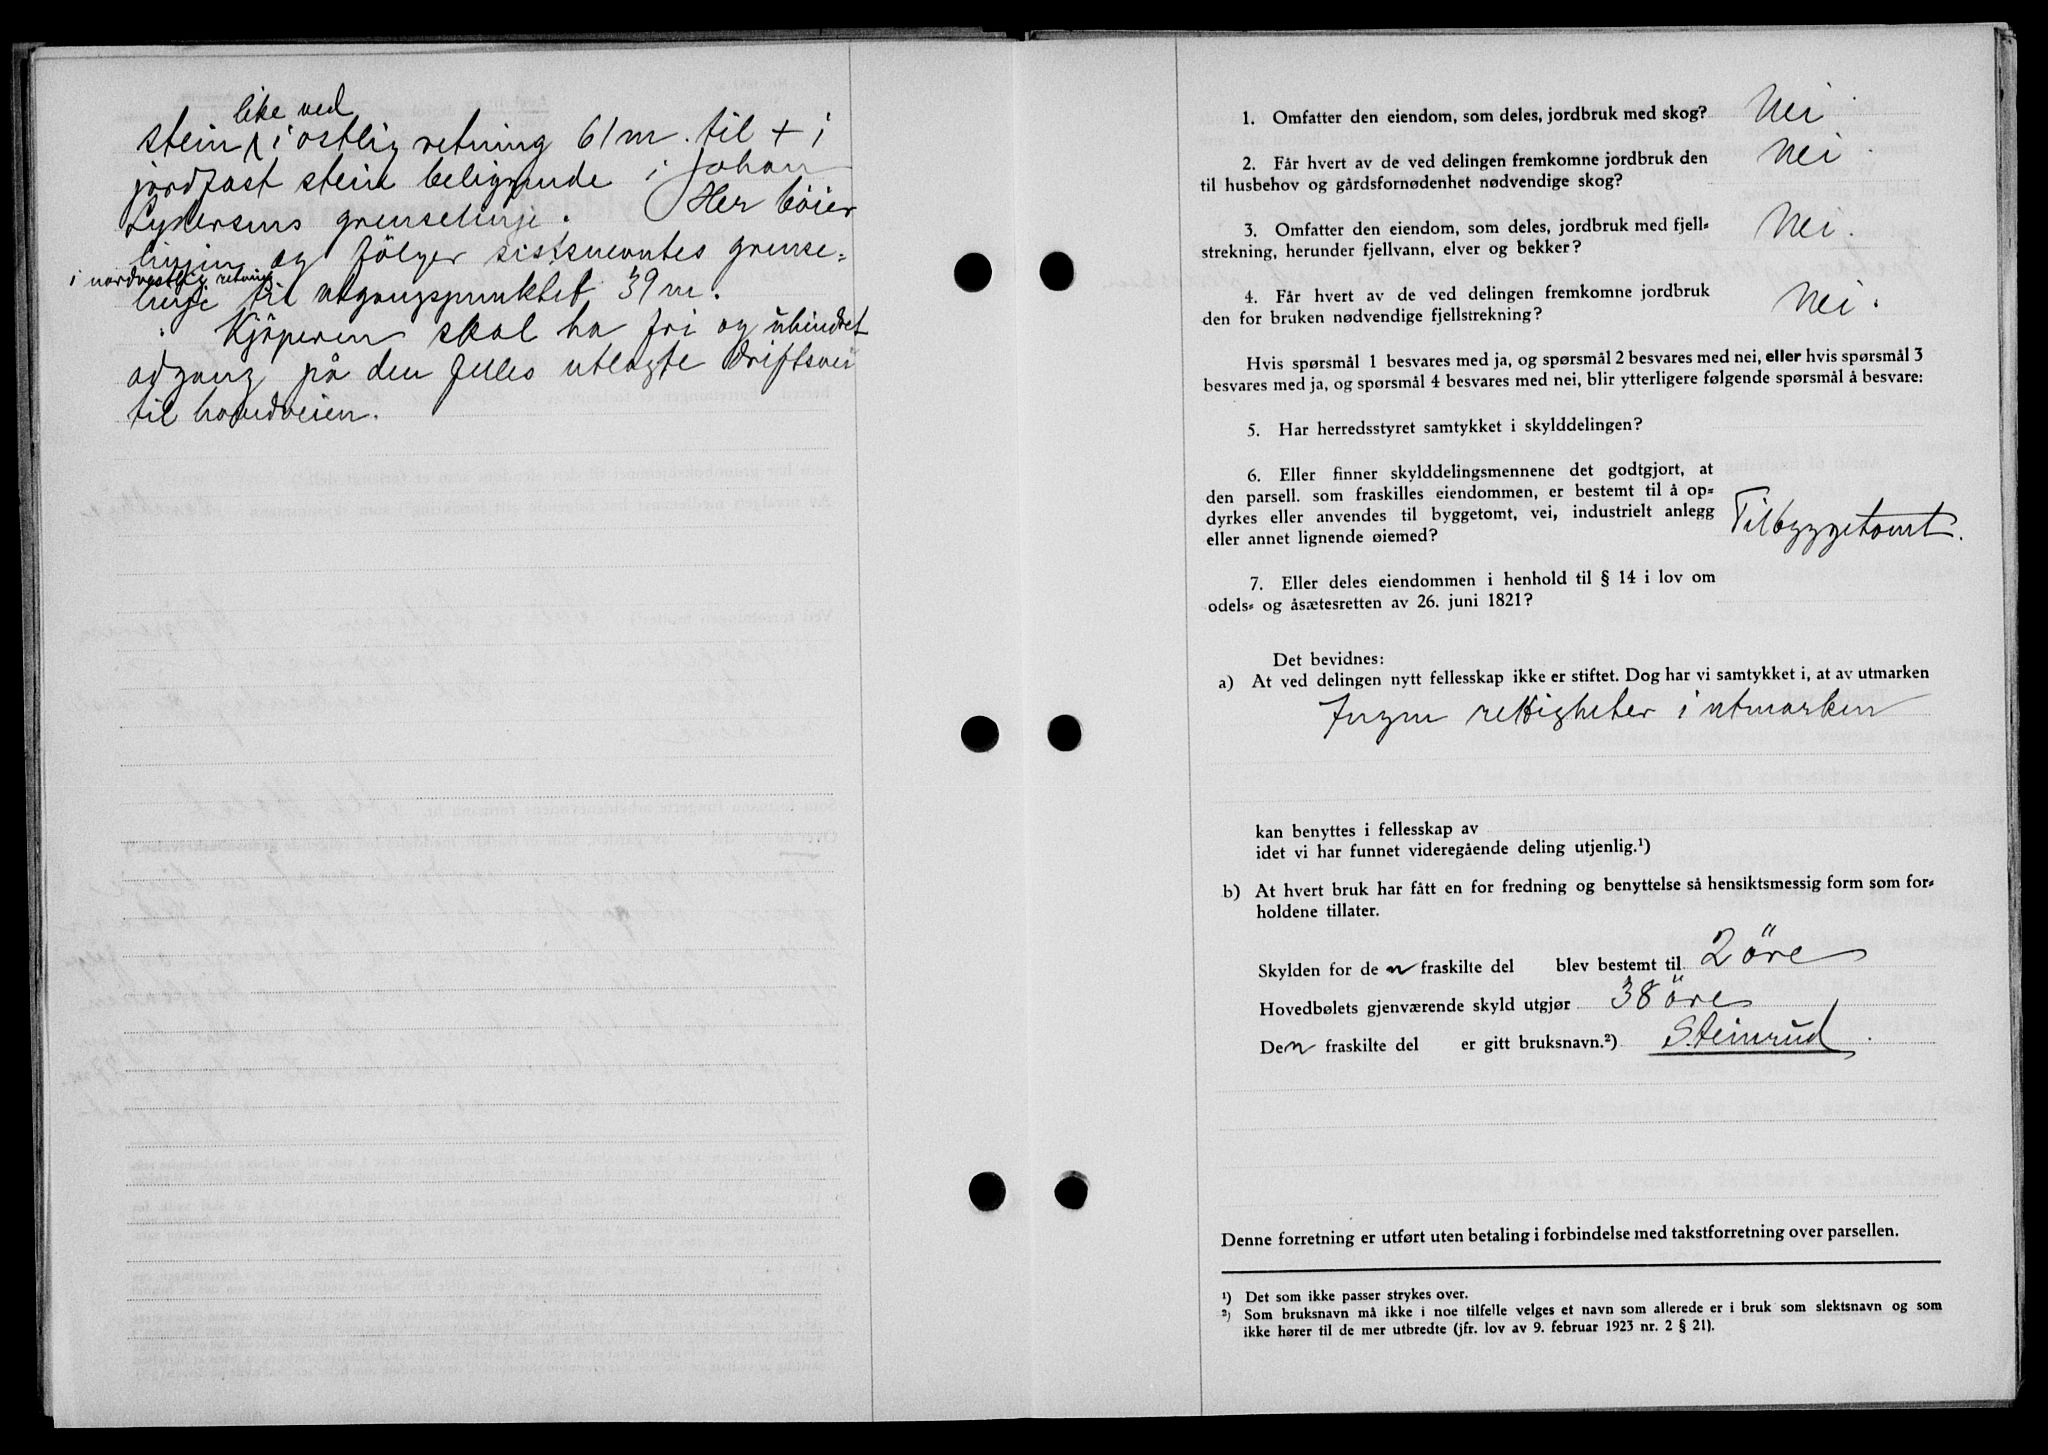 like ved
stein, i østlig retning 61 m. til + i
jordfast stein beliggende i Johan
grenselinje. Her bøier
linjen og følger sistnevntes grense-
i nordvestlig retning
linje til utgangspunktet 39 m.
Kjøperen skal ha fri og uhindret
adgang på den felles utlagte driftsvei
til hovedveien.
1. Omfatter den eiendom, som deles, jordbruk med skog? Nei
2. Får hvert av de ved delingen fremkomne jordbruk den
til husbehov og gårdsfornødenhet nødvendige skog? Nei.
3. Omfatter den eiendom, som deles, jordbruk med fjell-
strekning, herunder fjellvann, elver og bekker? Nei.
4. Får hvert av de ved delingen fremkomne jordbruk
den for bruken nødvendige fjellstrekning? Nei.
Hvis spørsmål 1 besvares med ja, og spørsmål 2 besvares med nei, eller hvis spørsmål 3
besvares med ja, og spørsmål 4 besvares med nei, blir ytterligere følgende spørsmål å besvare:
5. Har herredsstyret samtykket i skylddelingen?
6. Eller finner skylddelingsmennene det godtgjort, at
den parsell. som fraskilles eiendommen, er bestemt til å op-
dyrkes eller anvendes til byggetomt, vei, industrielt anlegg
eller annet lignende øiemed? Til byggetomt.
7. Eller deles eiendommen i henhold til § 14 i lov om
odels- og åsætesretten av 26. juni 1821?
Det bevidnes:
a) At ved delingen nytt fellesskap ikke er stiftet. Dog har vi samtykket i, at av utmarken
Ingen rettigheter i utmarken
kan benyttes i fellesskap av
idet vi har funnet videregående deling utjenlig.¹)
b) At hvert bruk har fått en for fredning og benyttelse så hensiktsmessig form som for-
holdene tillater.
Skylden for den fraskilte del blev bestemt til 2 öre
Hovedbølets gjenværende skyld utgjør 38 öre
Den fraskilte del er gitt bruksnavn.²) Steinrud.
Denne forretning er utført uten betaling i forbindelse med takstforretning over parsellen.
¹) Det som ikke passer strykes over.
²) Som bruksnavn må ikke i noe tilfelle velges et navn som allerede er i bruk som slektsnavn og som
ikke hører til de mer utbredte (jfr. lov av 9. februar 1923 nr. 2 § 21).